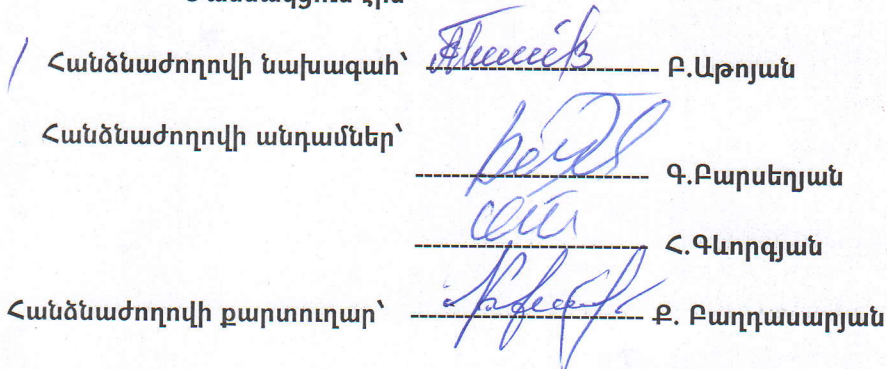 Հանձնաժողովի նախագահ՝ ------------------------ Բ.Աթոյան
Հանձնաժողովի անդամներ՝
------------------------ Գ.Բարսեղյան
------------------------ Հ.Գևորգյան
Հանձնաժողովի քարտուղար՝ ------------------------ Ք. Բաղդասարյան